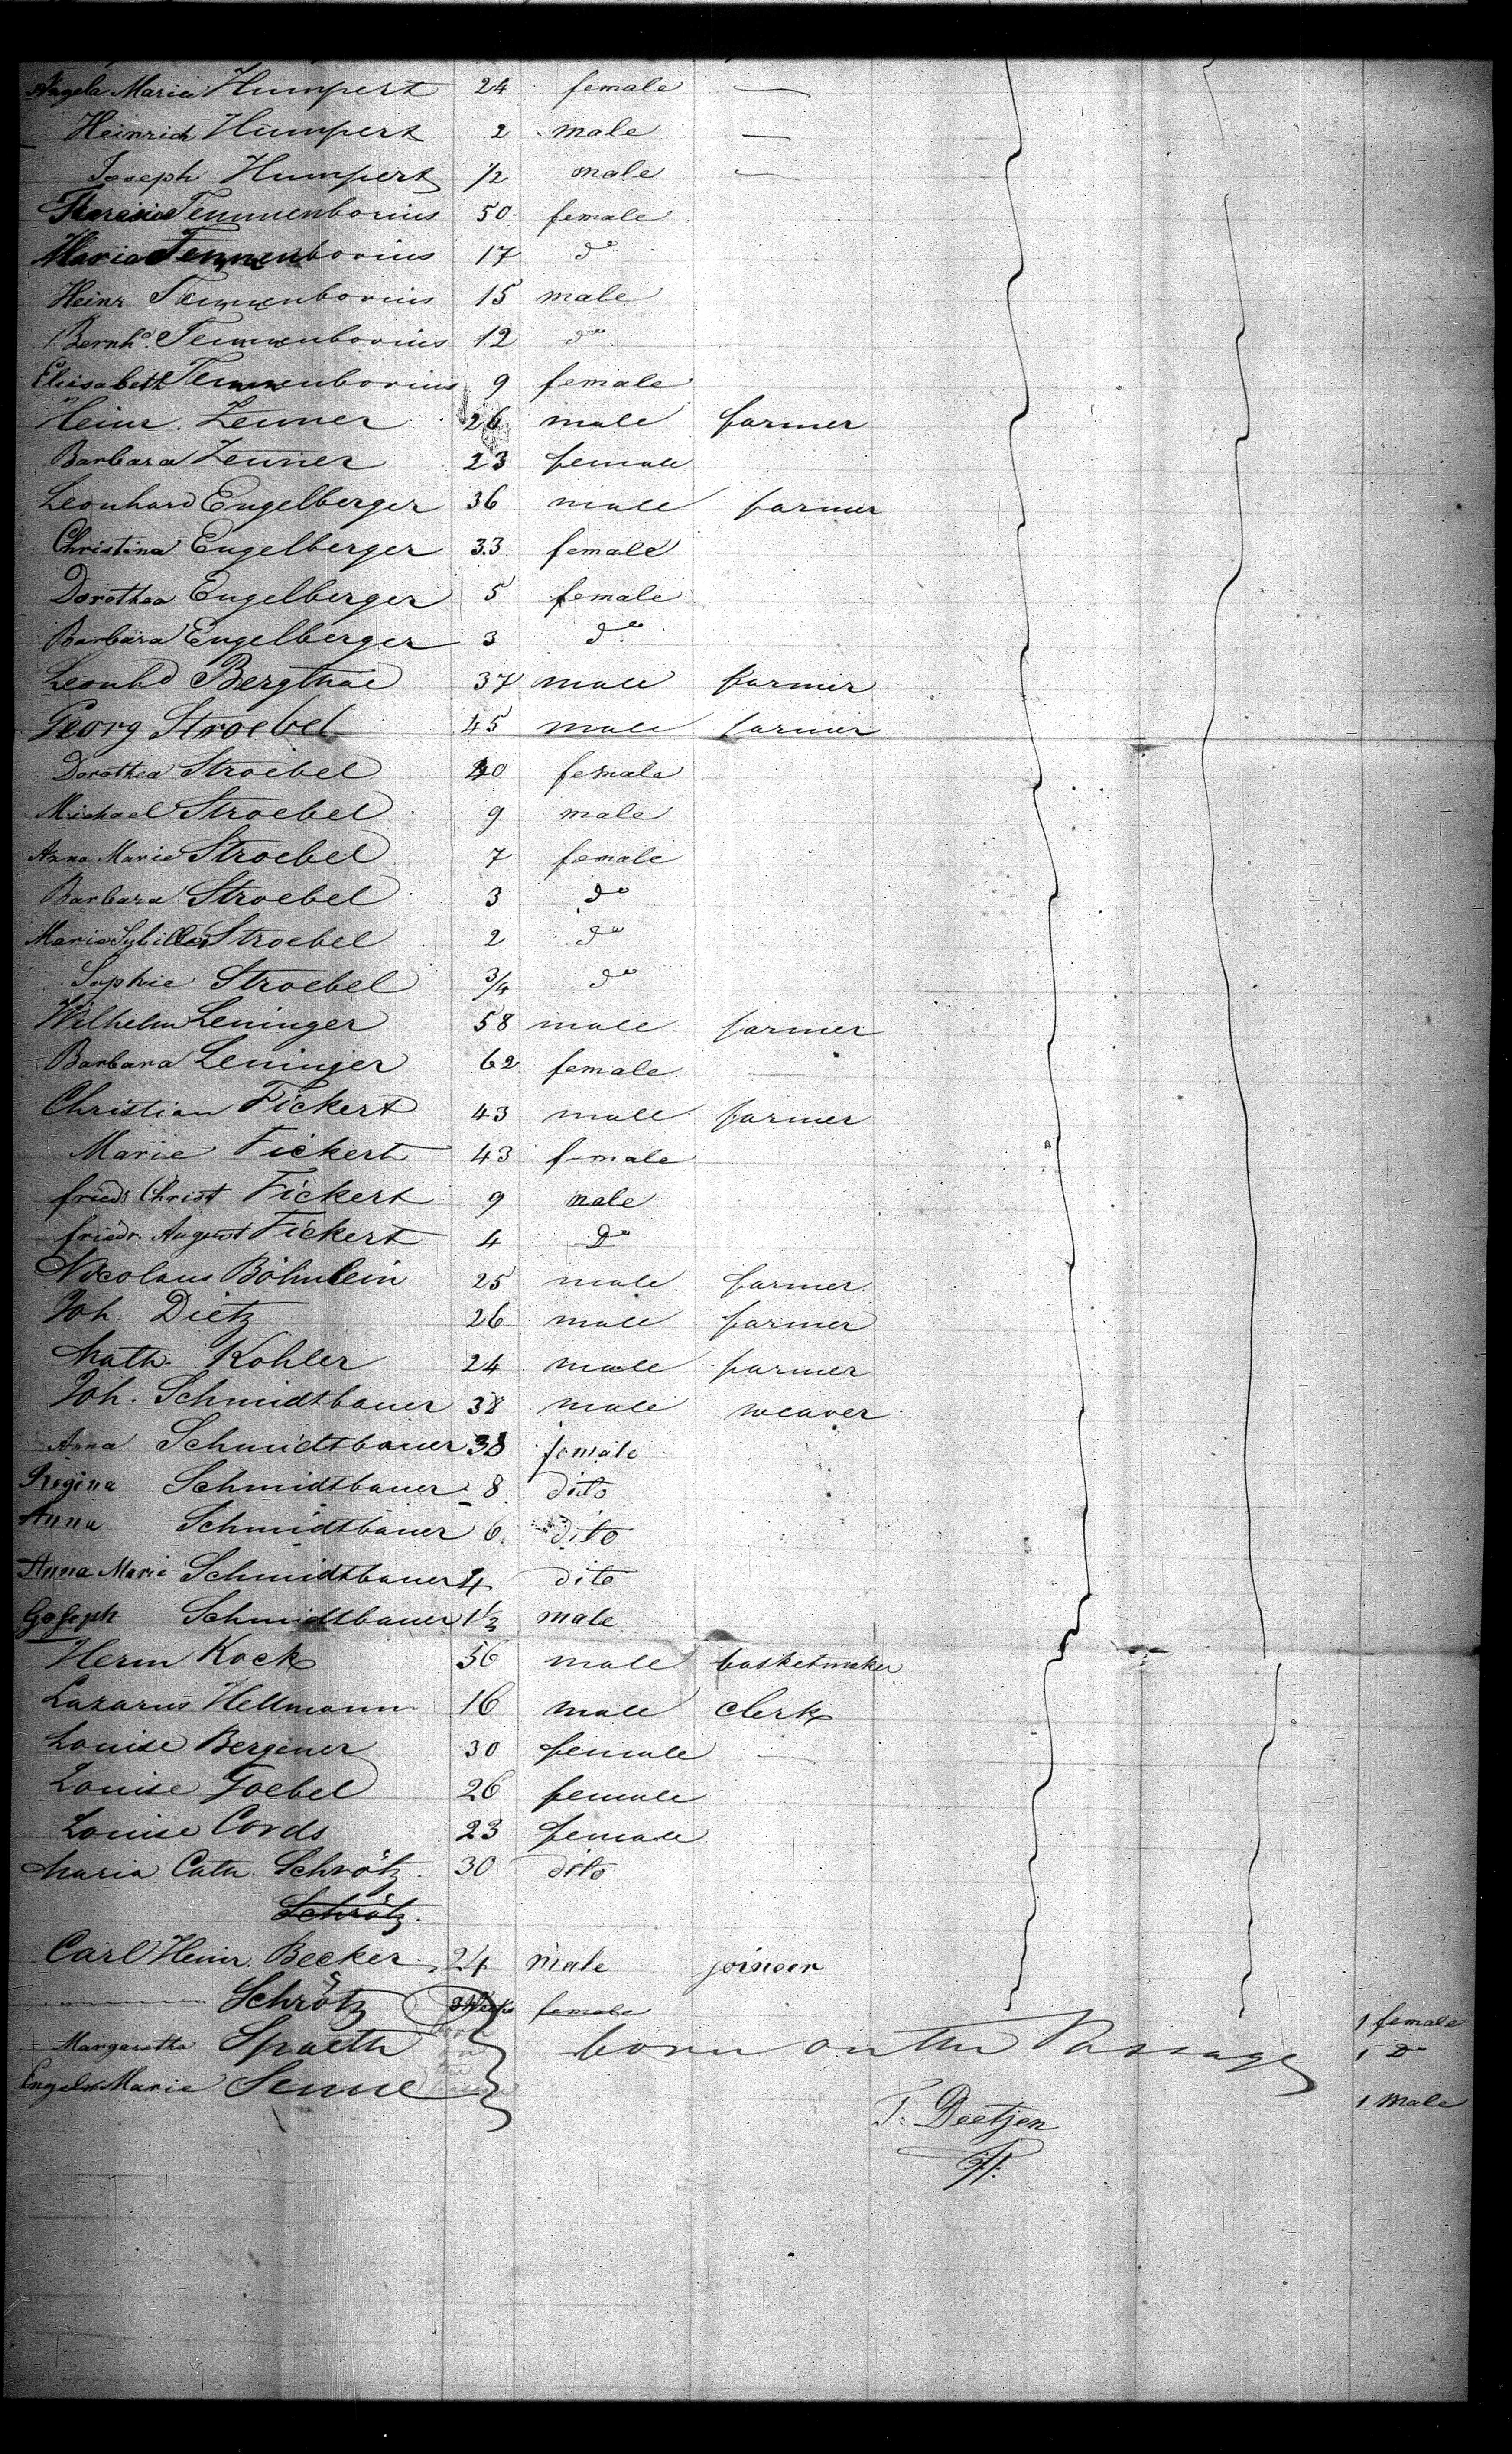 Angela Maria Humpert 24 female —
Heinrich Humpert 2 male —
Joseph Humpert 1/2 male —
Tennenborius 50 female
Maria Tennenborius 17 do
Heinr Tennenborius 15 male
Bernhd. Tennenborius 12 do
Elisabeth Tennenborius 9 female
Heinr. Zenner 26 male farmer
Barbara Zenner 23 female
Leonhard Engelberger 36 male farmer
Christina Engelberger 33 female
Dorothea Engelberger 5 female
Barbara Engelberger 3 do
Leonhd 37 male farmer
Georg Stroebel 45 male farmer
Dorothea Stroebel 40 female
Michael Stroebel 9 male
Anna Marie Stroebel 7 female
Barbara Stroebel 3 do
Maria Sybilla Stroebel 2 do
Sophie Stroebel 3/4 do
Wilhelm Leninger 58 male farmer
Barbara Leninger 62 female
Christian Fickert 43 male farmer
Marie Fickert 43 female
friedr Christ Fickert 9 male
friedr. August Fickert 4 Do
Nicolaus Böhnlein 25 male farmer
Joh. Dietz 26 male farmer
Math. Kohler 24 male farmer
Joh. Schmidtbauer 38 male weaver
Anna Schmidtbauer 38 female
Regina Schmidtbauer 8 dito
Anna Schmidtbauer 6 dito
Anna Marie Schmidtbauer 4 dito
Joseph Schmidtbauer 1 1/2 male
Herm Kock 56 male basketmaker
Lazarus Hellmann 16 male clerk
Louise Bergener 30 female —
Louise Goebel 26 female
Louise Cords 23 female
Maria Cath. Schrötz. 30 dito
Schrötz.
Carl Heinr. Becker 24 male joineer
Schrötz female 1 female
Margaretha Spaeth born on the Passage 1 Do
Engel Marie Senne 1 male
T. Deetjen